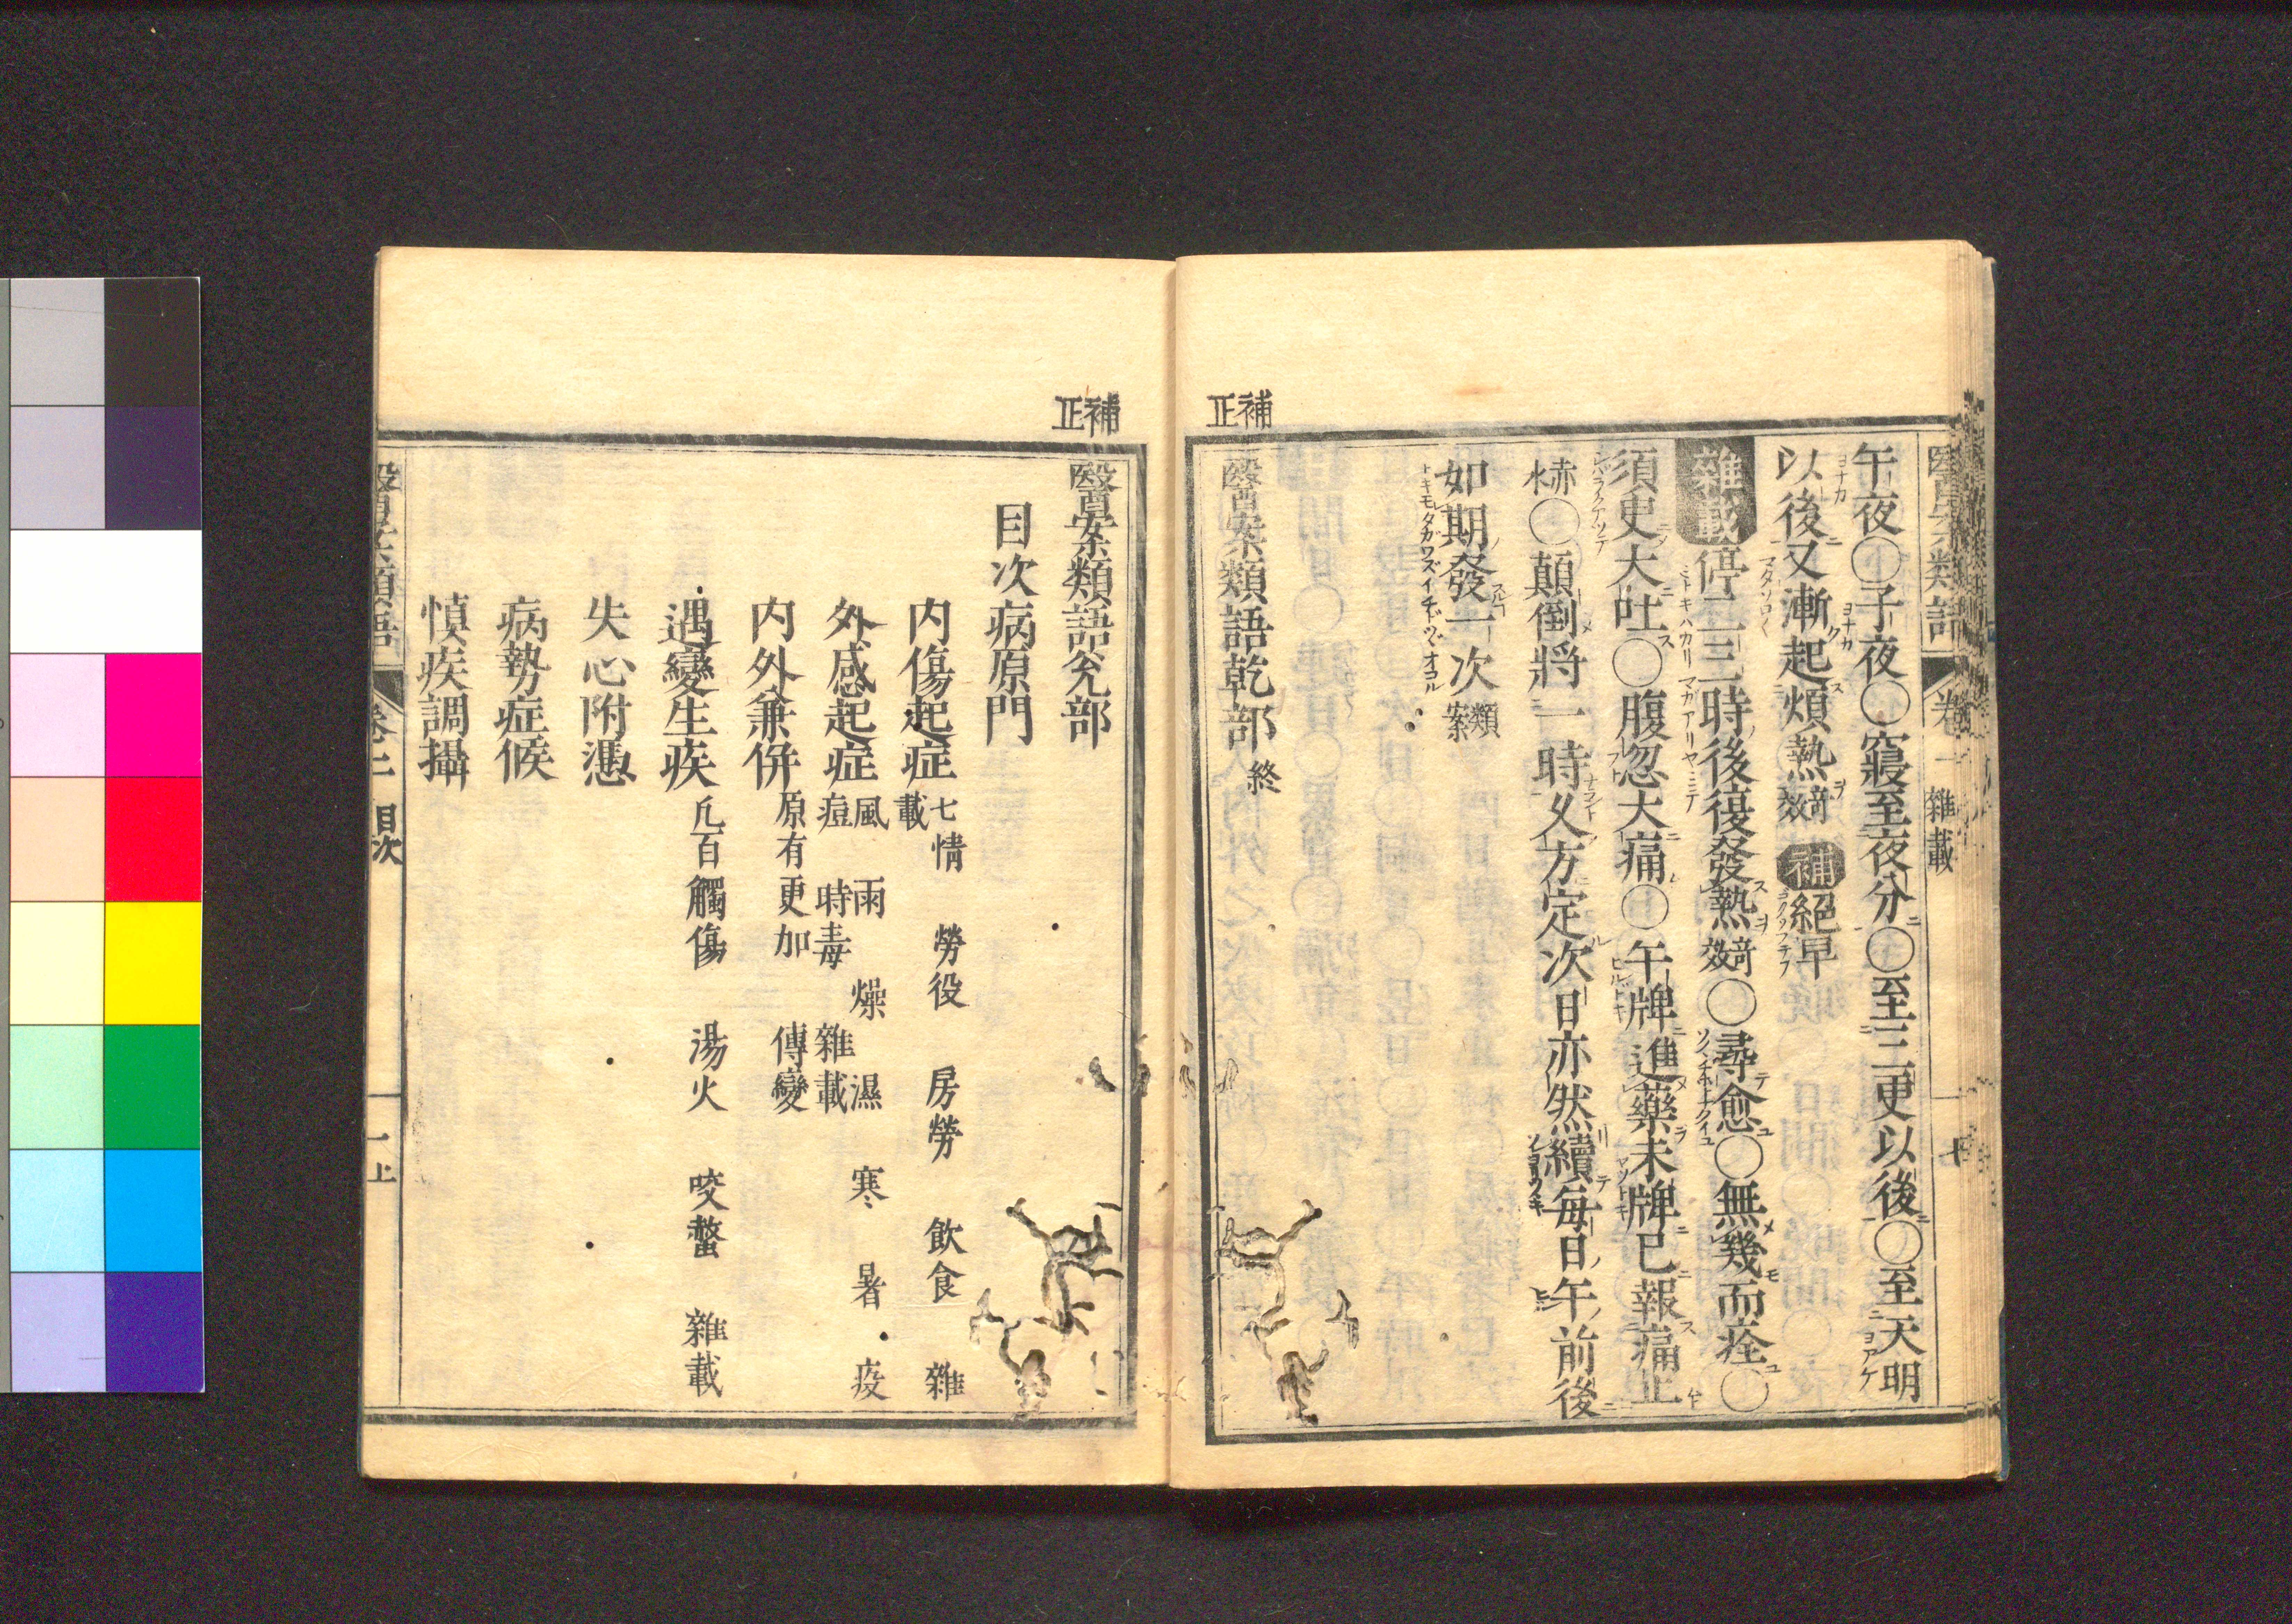 醫案類語
卷一
雜載
午夜〇子夜〇寢至夜分〇至三更以後〇至天明
以後又漸起煩熱奇效補絕早
雜載停二三時後復發熱奇效〇尋愈〇無幾而痊〇
須臾大吐〇腹忽大痛〇午牌進藥未牌已報痛止
赤水〇顛倒將一時久方定次日亦然續每日午前後
如期發一次類案
補正
醫案類語乾部終
補正
醫案類語兌部
目次病原門
內傷起症七情 勞役 房勞 飲食 雜載
外感起症風 雨 燥 濕 寒 暑 疫痘 時毒 雜載
內外兼併原有更加 傳變
遇變生疾凡百觸傷 湯火 咬螫 雜載
失心附憑
病勢症候
慎疾調攝
醫案類語
卷二
目次
一上